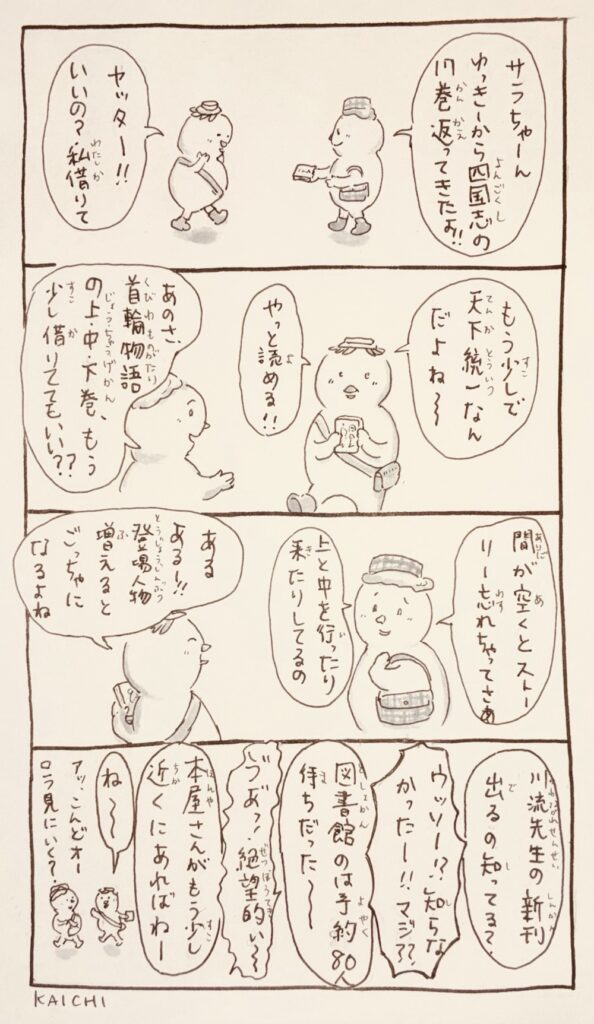 サラちゃーん
ゆっきーから四国志の
17巻返ってきたよ!!
ヤッター!!
いいの?私借りて
もう少しで
天下統一なん
だよね〜
やっと読める!!
あのさ、
首輪物語
の上・中・下巻、もう
少し借りててもいい??
間が空くとストー
リー忘れちゃってさぁ
上と中を行ったり
来たりしてるの
ある
ある〜!!
登場人物
増えると
ごっちゃに
なるよね
川流先生の新刊
出るの知ってる?
ウッソー!?知らな
かったー!!マジ??
図書館のは予約80人
待ちだった〜
ヴあっ!絶望的ぃ〜
本屋さんがもう少し
近くにあればねー
ね〜〜
アッ、こんどオー
ロラ見にいく?
KAICHI